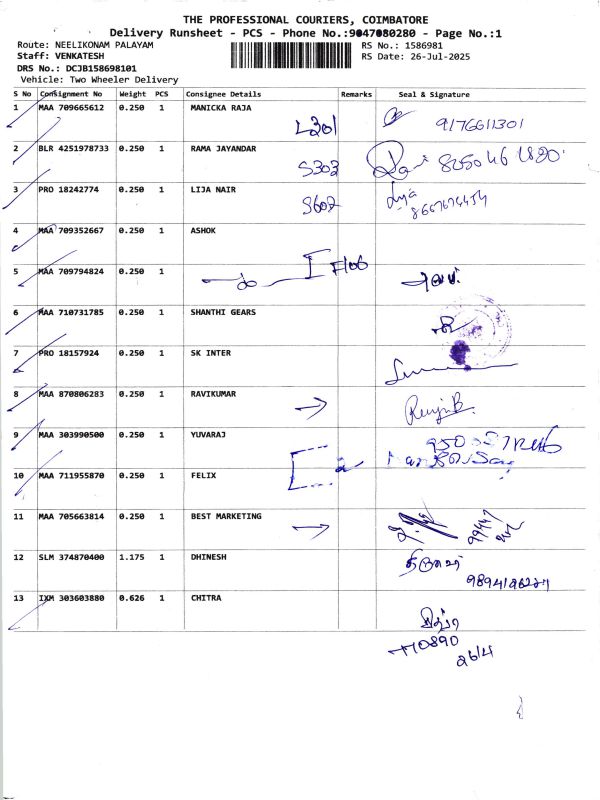 THE PROFESSIONAL COURIERS, COIMBATORE
Delivery Runsheet - PCS - Phone No.:9047080280 - Page No.:1
Route: NEELIKONAM PALAYAM
RS No.: 1586981
Staff: VENKATESH
RS Date: 26-Jul-2025
DRS No.: DCJB158698101
Vehicle: Two Wheeler Delivery
S No Consignment No Weight PCS Consignee Details Remarks Seal & Signature
1 MAA 709665612 0.250 1 MANICKA RAJA
L301 9176611301
2 BLR 4251978733 0.250 1 RAMA JAYANDAR
S303
3 PRO 18242774 0.250 1 LIJA NAIR
S602 Lija
4 MAA 709352667 0.250 1 ASHOK
F106
5 MAA 709794824 0.250 1
do
6 MAA 710731785 0.250 1 SHANTHI GEARS
7 PRO 18157924 0.250 1 SK INTER
8 MAA 870806283 0.250 1 RAVIKUMAR
9 MAA 303990500 0.250 1 YUVARAJ
10 MAA 711955870 0.250 1 FELIX
11 MAA 705663814 0.250 1 BEST MARKETING
12 SLM 374870400 1.175 1 DHINESH
13 IXM 303603880 0.626 1 CHITRA
சித்ரா